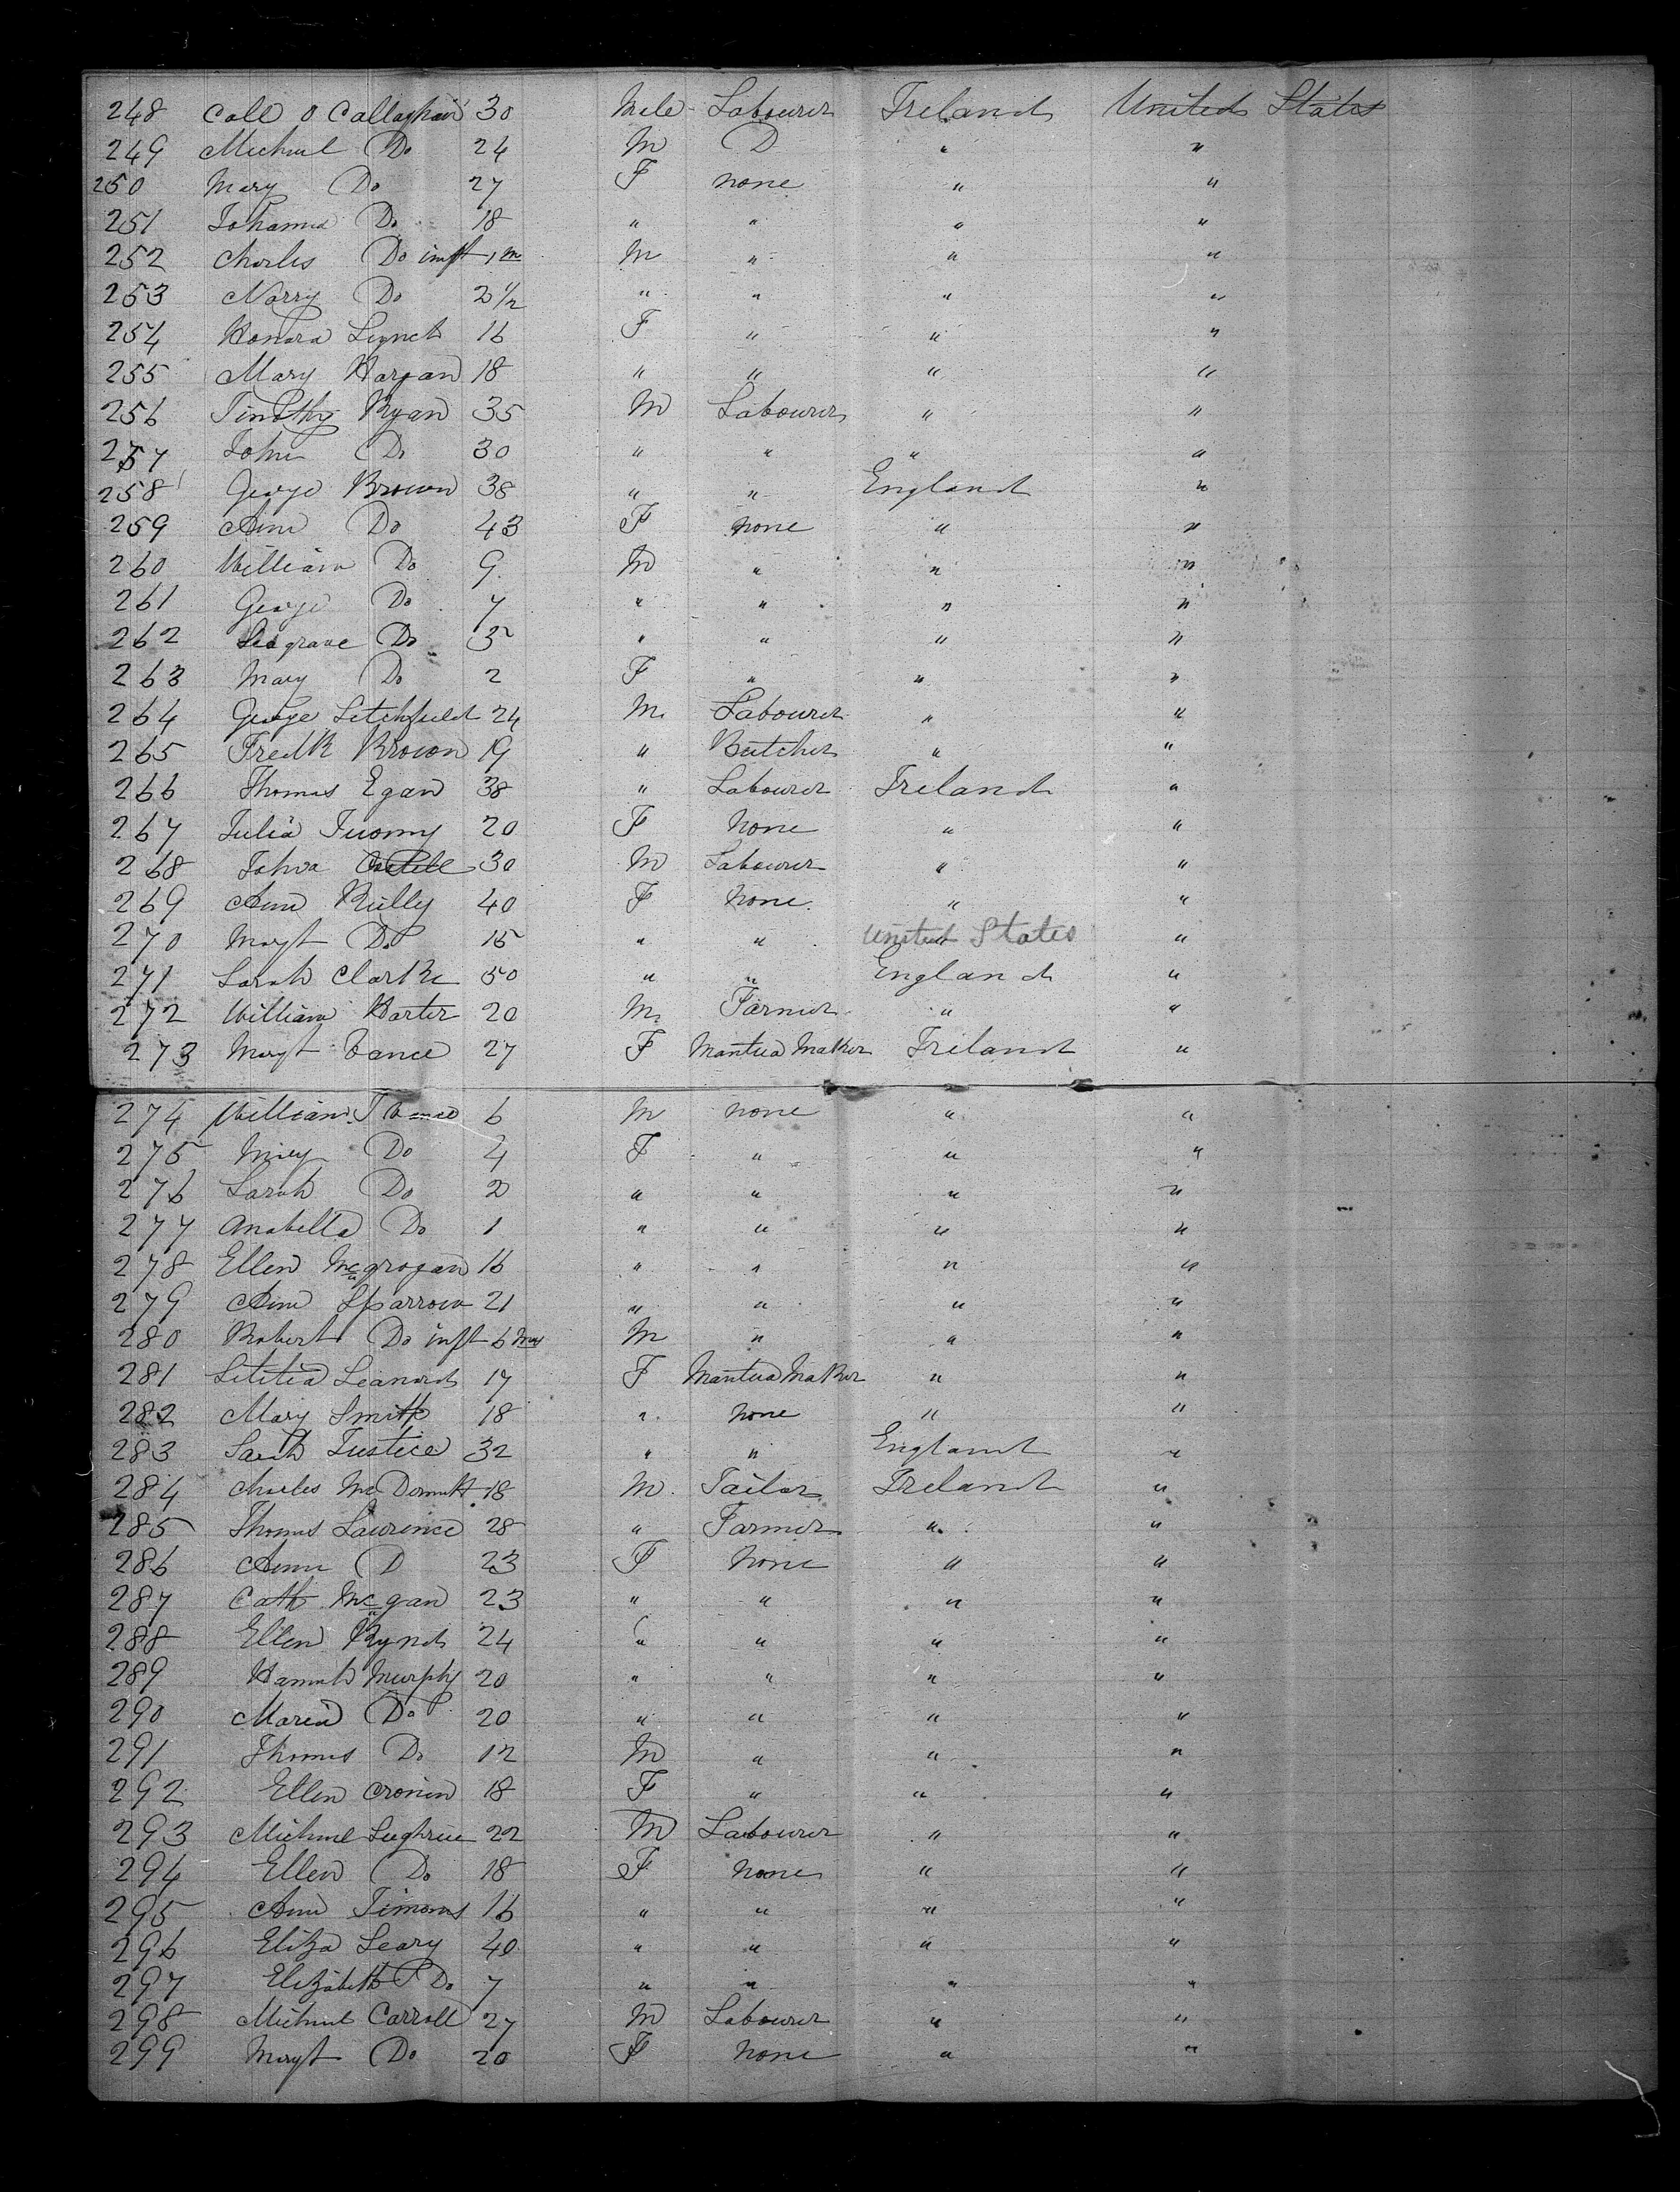 248 Call O Callaghan 30 Male Labourer Ireland United States
249 Michael Do 24 M D " "
250 Mary Do 27 F none " "
251 Johanna Do 18 " " " "
252 Charles Do inft 1 m M " " "
253 Norry Do 2 1/2 " " " "
254 Honora Lynch 16 F " " "
255 Mary Hargan 18 " " " "
256 Timothy Ryan 35 M Labourer " "
257 John Do 30 " " " "
258 George Brown 38 " " England "
259 Ann Do 43 F none " "
260 William Do 9 M " " "
261 George Do 7 " " " "
262 Seagrave Do 5 " " " "
263 Mary Do 2 F " " "
264 George Litchfield 24 M. Labourer " "
265 Fredk Brown 19 " Butcher " "
266 Thomas Egan 38 " Labourer Ireland "
267 Julia Tuomy 20 F None " "
268 John 30 M Labourer " "
269 Ann Reilly 40 F None " "
270 Margt Do 15 " " United States "
271 Sarah Clarke 50 " " England "
272 William Harter 20 M. Farmer " "
273 Margt Vance 27 F Mantua Maker Ireland "
274 William J Vance 6 M none " "
275 Mary Do 4 F " " "
276 Sarah Do 2 " " " "
277 Anabella Do 1 " " " "
278 Ellen McGrogan 16 " " " "
279 Ann Sparrow 21 " " " "
280 Robert Do inft 6 ms M " " "
281 Letitia Leanord 17 F Mantua Maker " "
282 Mary Smith 18 " none " "
283 Sarah Justice 32 " " England "
284 Charles McDermott 18 M. Tailor Ireland "
285 Thomas Laurence 28 " Farmer " "
286 Ann D 23 F None " "
287 Cath McGan 23 " " " "
288 Ellen Rynd 24 " " " "
289 Hannah Murphy 20 " " " "
290 Maria Do 20 " " " "
291 Thomas Do 12 M " " "
292 Ellen Cronin 18 F " " "
293 Michael Lughrue 22 M Labourer " "
294 Ellen Do 18 F none " "
295 Ann Timons 16 " " " "
296 Eliza Leary 40 " " " "
297 Elizabeth Do 7 " " " "
298 Michael Carroll 27 M Labourer " "
299 Margt Do 20 F None " "